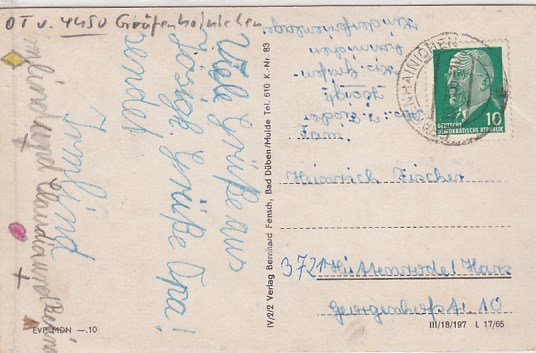 OT v. 4450 Gräfenhainichen
Viele Grüße aus
Jösigk Grüße Opa!
sendet
Irmlind
Irmlind und Claudia und
EVP MDN —.10
IV/2/2 Verlag Bernhard Fensch, Bad Düben/Mulde Tel. 610 K.-Nr. 83
10
DEUTSCHE
DEMOKRATISCHE REPUBLIK
Kinderferienlager
Gräfen
hainichen
Jösigk
Fam.
Heinrich Fischer
3721 Hüttenrode/Harz
Georgenhofstr. 10
III/18/197 L 17/65